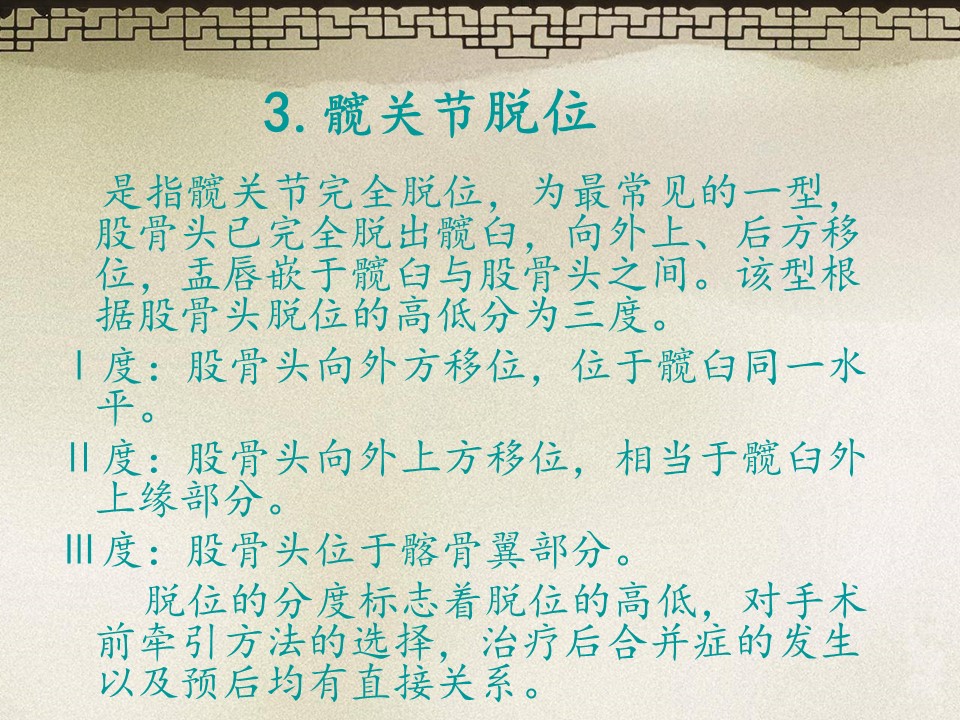 3.髋关节脱位
是指髋关节完全脱位，为最常见的一型，
股骨头已完全脱出髋臼，向外上、后方移
位，盂唇嵌于髋臼与股骨头之间。该型根
据股骨头脱位的高低分为三度。
Ⅰ度：股骨头向外方移位，位于髋臼同一水
平。
Ⅱ度：股骨头向外上方移位，相当于髋臼外
上缘部分。
Ⅲ度：股骨头位于髂骨翼部分。
脱位的分度标志着脱位的高低，对手术
前牵引方法的选择，治疗后合并症的发生
以及预后均有直接关系。